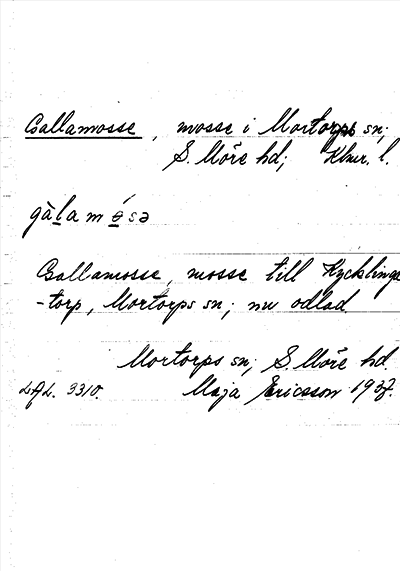 Gallamosse, mosse i Mortorps sn;
S. Möre hd; Klmr. l.
gàlamǿsə
Gallamosse, mosse till Kycklinge
-torp, Mortorps sn; nu odlad
Mortorps sn; S. Möre hd.
LAL. 3310. Maja Ericsson 1937.